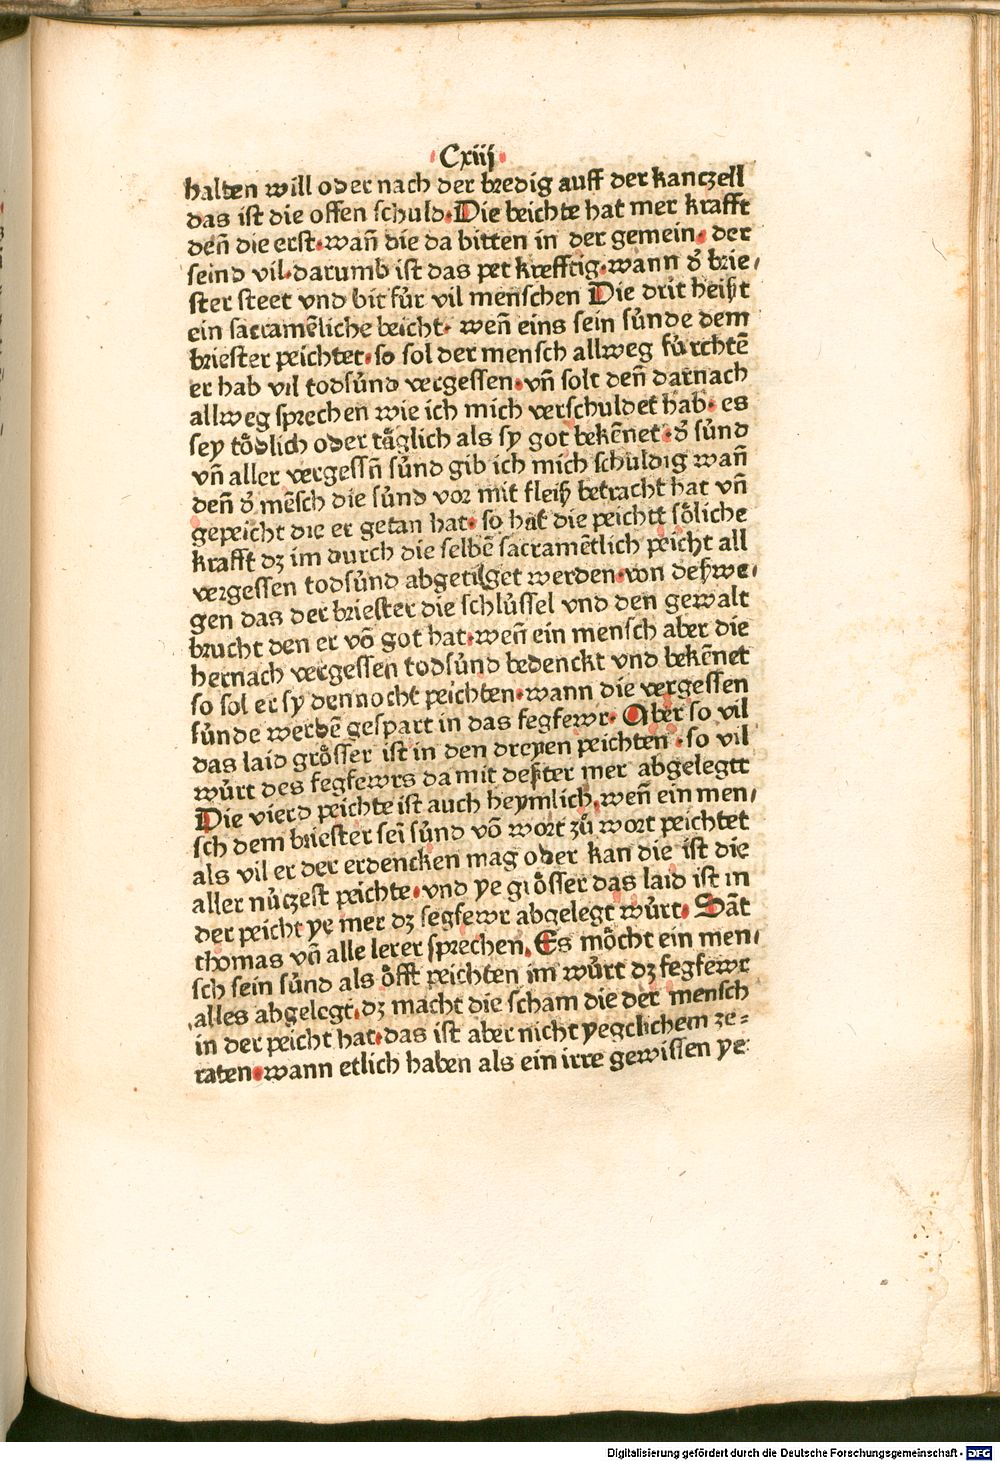 Cxiij
halten will oder nach der bredig auff der kanczell
das ist die offen schuld. Die beichte hat mer krafft
deñ die erst. wañ die da bitten in der gemein. der
seind vil. darumb ist das pet krefftig. wann d̕ brie/
ster steet vnd bit fůr vil menschen Die drit heißt
ein sacramẽliche beicht. weñ eins sein sůnde dem
briester peichtet. so sol der mensch allweg fůrchtẽ
er hab vil todsůnd vergessen. vñ solt deñ darnach
allweg sprechen wie ich mich verschuldet hab. es
sey toͤdlich oder taͤglich als sy got bekẽnet. d̕ sůnd
vñ aller vergessñ sůnd gib ich mich schuldig wañ
deñ d̕ mẽsch die sůnd vor mit fleiß betracht hat vñ
gepeicht die er getan hat. so hat die peichtt soͤliche
krafft dz im durch die selbẽ sacramẽtlich peicht all
vergessen todsůnd abgetilget werden. von deßwe/
gen das der briester die schlůssel vnd den gewalt
brucht den er võ got hat. weñ ein mensch aber die
hernach vergessen todsůnd bedenckt vnd bekẽnet
so sol er sy dennocht peichten. wann die vergessen
sůnde werdẽ gespart in das fegfewr. Aber so vil
das laid groͤsser ist in den dreyen peichten. so vil
wůrt des fegfewrs da mit deßter mer abgelegtt
Die vierd peichte ist auch heymlich. weñ ein men/
sch dem briester sei sůnd võ wort zů wort peichtet
als vil er der erdencken mag oder kan die ist die
aller nůczest peichte. vnd ye groͤsser das laid ist in
der peicht ye mer dz fegfewr abgelegt wůrt. Sãt
thomas vñ alle lerer sprechen. Es moͤcht ein men/
sch sein sůnd als oͤfft peichten im wůrt dz fegfewr
alles abgelegt. dz macht die scham die der mensch
in der peicht hat. das ist aber nicht yegclichem ze=
raten. wann etlich haben als ein irre gewissen ye
Digitalisierung gefördert durch die Deutsche Forschungsgemeinschaft - DFG